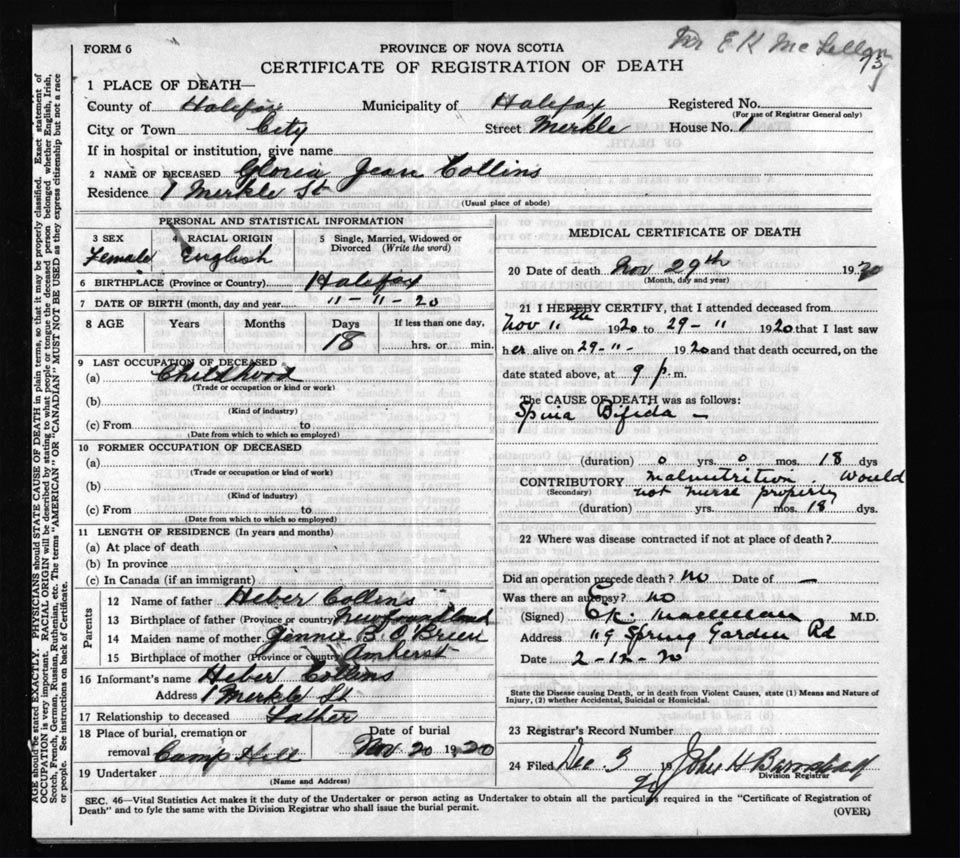 Mr E K McLellan
73
FORM 6
PROVINCE OF NOVA SCOTIA
CERTIFICATE OF REGISTRATION OF DEATH
1 PLACE OF DEATH—
County of Halifax Municipality of Halifax Registered No.
(For use of Registrar General only)
City or Town City Street Merkle House No. 1
If in hospital or institution, give name
2 NAME OF DECEASED Gloria Jean Collins
Residence 1 Merkle St
(Usual place of abode)
PERSONAL AND STATISTICAL INFORMATION
3 SEX 4 RACIAL ORIGIN 5 Single, Married, Widowed or
Divorced (Write the word)
Female English
6 BIRTHPLACE (Province or Country) Halifax
7 DATE OF BIRTH (month, day and year) 11-11-20
8 AGE Years Months Days If less than one day,
18 hrs. or min.
9 LAST OCCUPATION OF DECEASED
(a) Childhood
(Trade or occupation or kind or work)
(b)
(Kind of industry)
(c) From to
(Date from which to which so employed)
10 FORMER OCCUPATION OF DECEASED
(a)
(Trade or occupation or kind of work)
(b)
(Kind of industry)
(c) From to
(Date from which to which so employed)
11 LENGTH OF RESIDENCE (In years and months)
(a) At place of death
(b) In province
(c) In Canada (if an immigrant)
Parents
12 Name of father Heber Collins
13 Birthplace of father (Province or country) Newfoundland
14 Maiden name of mother Jennie B. O'Brien
15 Birthplace of mother (Province or country) Amherst
16 Informant's name Heber Collins
Address 1 Merkle St
17 Relationship to deceased Father
18 Place of burial, cremation or Date of burial
removal Camp Hill Nov 20 1920
19 Undertaker
(Name and Address)
MEDICAL CERTIFICATE OF DEATH
20 Date of death Nov 29th 1920
(Month, day and year)
21 I HEREBY CERTIFY, that I attended deceased from
Nov 11th 1920 to 29-11 1920 that I last saw
her alive on 29-11- 1920 and that death occurred, on the
date stated above, at 9 p.m.
The CAUSE OF DEATH was as follows:
Spina Bifida —
(duration) 0 yrs. 0 mos. 18 dys
CONTRIBUTORY malnutrition would
(Secondary) not nurse properly
(duration) yrs. mos. 18 dys.
22 Where was disease contracted if not at place of death?
Did an operation precede death? no Date of —
Was there an autopsy? no
(Signed) E.K. Maclellan M.D.
Address 119 Spring Garden Rd
Date 2-12-20
State the Disease causing Death, or in death from Violent Causes, state (1) Means and Nature of
Injury, (2) whether Accidental, Suicidal or Homicidal.
23 Registrar's Record Number
24 Filed Dec 3 19 20 John H Barnstead
Division Registrar
SEC. 46—Vital Statistics Act makes it the duty of the Undertaker or person acting as Undertaker to obtain all the particulars required in the "Certificate of Registration of
Death" and to fyle the same with the Division Registrar who shall issue the burial permit.
(OVER)
AGE should be stated EXACTLY. PHYSICIANS should STATE CAUSE OF DEATH in plain terms, so that it may be properly classified. Exact statement of
OCCUPATION is very important. RACIAL ORIGIN will be described by stating to what people or tongue the deceased person belonged whether English, Irish,
Scotch, French, German, Russian, Ruthenian, etc. The terms "AMERICAN" OR "CANADIAN" MUST NOT BE USED as they express citizenship but not a race
or people. See instructions on back of Certificate.